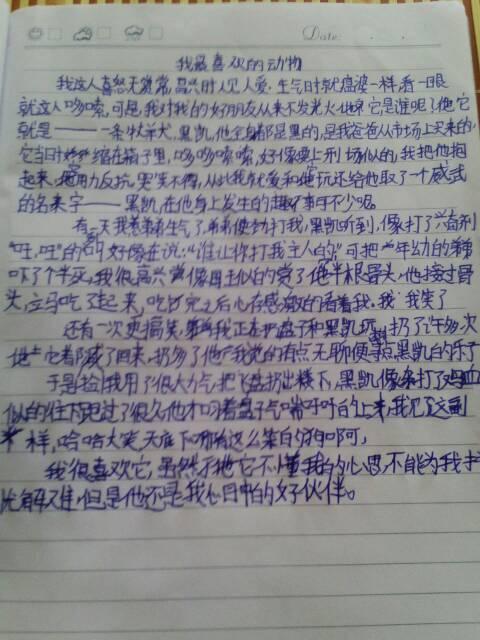 Date:
我最喜欢的动物
我这人喜怒无常,高兴时人见人爱,生气时就癌婆一样,看一眼
就这人哆嗦,可是,我对我的好朋友从来不发光火,它是谁呢?它
就是———一条牧羊犬,黑凯,他全身都是黑的,是我爸爸从市场上买来的,
它当时缩在箱子里,哆哆嗦嗦,好像要上刑场似的,我把他抱
起来,他用力反抗,哭笑不得,从此我就爱和他玩还给他取了一个威武
的名字——黑凯,在他身上发生的趣事可不少呢。
有一天我惹弟弟生气了,弟弟便动打我,黑凯听到,像打了兴奋剂
"旺,旺"的叫好像在说:"谁让你打我主人的",可把年幼的弟弟
吓了个半死,我很高兴像国王似的赏了他半根骨头,他接过骨
头,立马吃了起来,吃完之后心存感激的看着我,我笑了
还有一次更搞笑,我正在用盘子和黑凯玩,扔了许多次
他它都喊了回来,扔多了他我觉的有点无聊便拿黑凯的乐子
于是我用了很大力气,把飞盘扔出楼下,黑凯像打了鸡血
似的往下跑过了很久他才叼着盘子气喘呼呼的上来,我见了这副
样,哈哈大笑,天底下哪有这么笨的狗啊,
我很喜欢它,虽然它不懂我的心思,不能为我
解难,但是他还是我心目中的好伙伴。